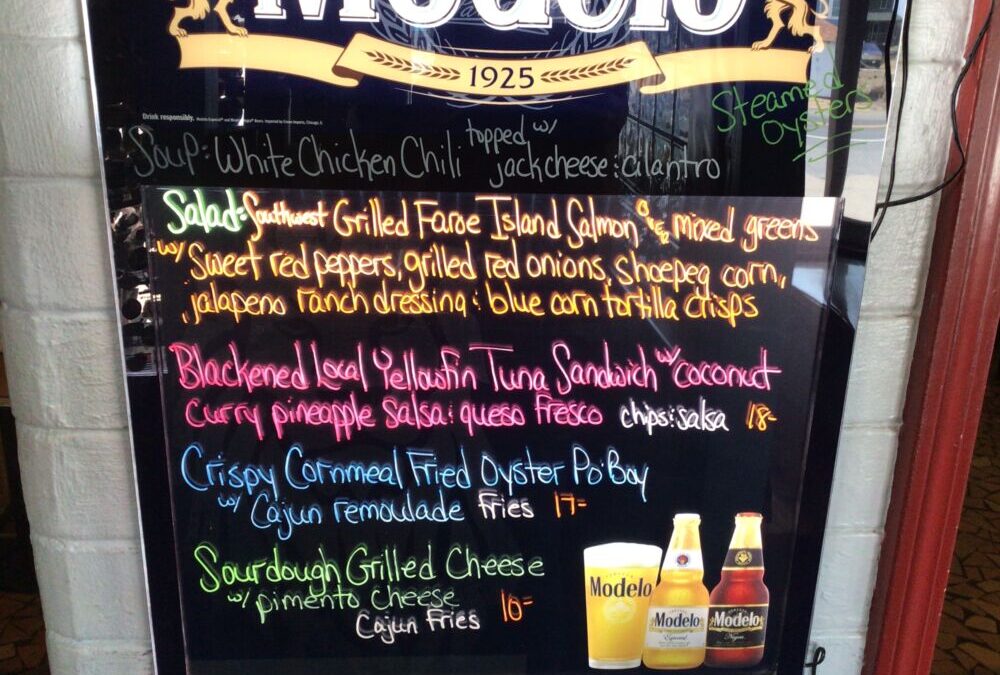 Modelo
1925
Drink responsibly.
Steamed
Oysters
Soup: White Chicken Chili topped w/ jack cheese : cilantro
Salad: Southwest Grilled Faroe Island Salmon over mixed greens
w/ Sweet red peppers, grilled red onions, shoepeg corn,
jalapeno ranch dressing : blue corn tortilla crisps
Blackened Local Yellowfin Tuna Sandwich w/ coconut
curry pineapple salsa : queso fresco chips : salsa 18-
Crispy Cornmeal Fried Oyster Po'Boy
w/ Cajun remoulade fries 17-
Sourdough Grilled Cheese
w/ pimento cheese
Cajun fries 10-
Modelo
Modelo
Especial
Modelo
Negra